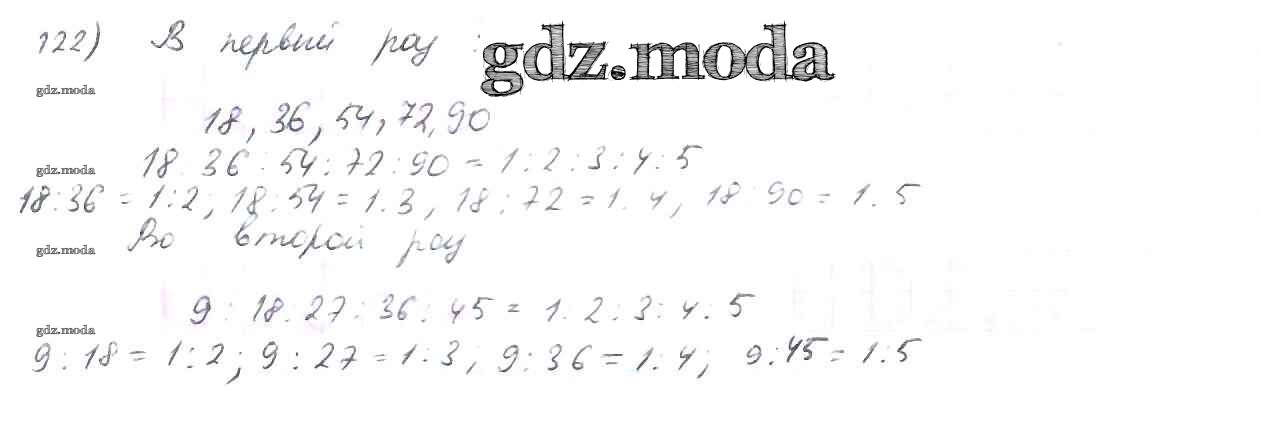 122) В первый раз :
gdz.moda
gdz.moda
18, 36, 54, 72, 90
gdz.moda
18 : 36 : 54 : 72 : 90 = 1 : 2 : 3 : 4 : 5
18 : 36 = 1 : 2 ; 18 : 54 = 1 . 3 , 18 : 72 = 1 . 4 , 18 : 90 = 1 . 5
gdz.moda
Во второй раз
9 : 18 . 27 : 36 : 45 = 1 . 2 : 3 : 4 . 5
gdz.moda
9 : 18 = 1 : 2 ; 9 : 27 = 1 : 3 ; 9 : 36 = 1 : 4 ; 9 : 45 = 1 : 5